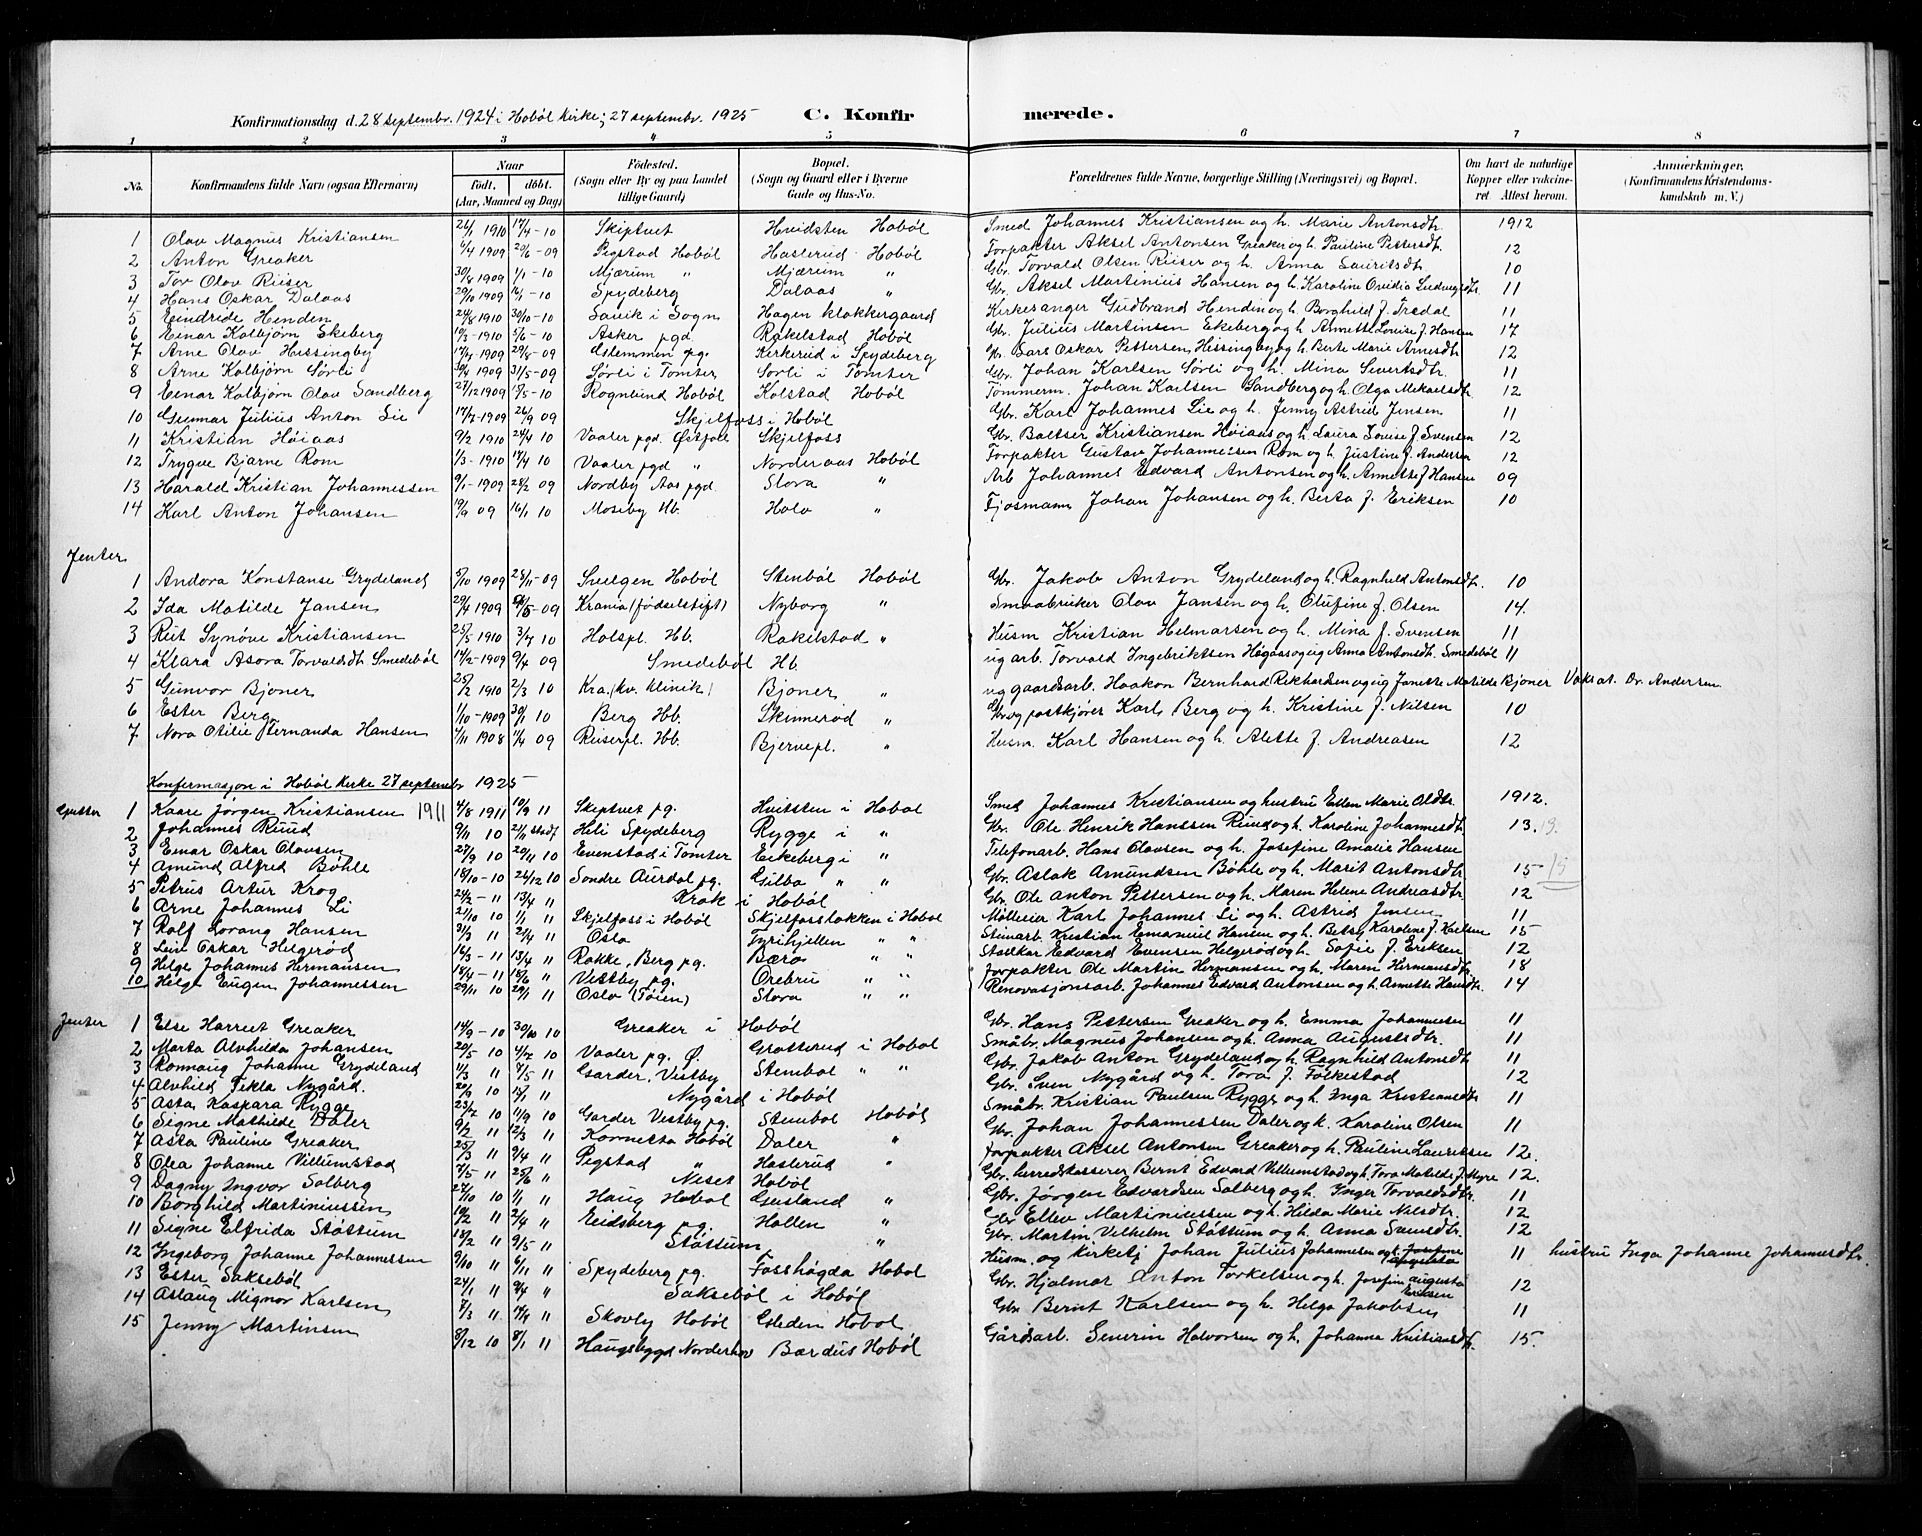 Konfirmationsdag d. 28 septembr. 1924 i Hobøl kirke; 27 septembr. 1925 C. Konfirmerede.
1 2 3 4 5 6 7 8
No. Konfirmandens fulde Navn (ogsaa Efternavn) Naar født. døbt. (Aar, Maaned og Dag) Fødested. (Sogn eller By og paa Landet tillige Gaard) Bopæl. (Sogn og Gaard eller i Byerne Gade og Hus-No. Forældrenes fulde Navne, borgerlige Stilling (Næringsvei) og Bopæl. Om havt de naturlige Kopper eller vaccineret Attest herom. Anmærkninger, (Konfirmandens Kristendomskundskab m. V.)
1 Olav Magnus Kristiansen 26/1 1910 17/4 - 10 Skiptvet Hvidsten Hobøl Smed Johannes Kristiansen og h. Marie Antonsdtr. 1912
2 Anton Greaker 6/4 1909 20/6 - 09 Pigstad Hobøl Hasterud Hobøl Forpakter Aksel Antonsen Greaker og h. Pauline Pettersdtr. 12
3 Tov Olav Riiser 1909 1/1 - 10 Mjærum " Mjærum " Gbr. Torvald Olsen Riiser og h. Anna Lauritsdtr. 10
4 Hans Oskar Dalaas 29/10 1909 16/1 - 10 Spydeberg Dalaas " Gbr. Aksel Martinius Hansen og h. Karoline Ovidia Ludvigsdtr. 11
5 Eindride Henden 24/8 1910 30/10 - 10 i Sogn Hagen klokkergaard Kirkesanger Gudbrand Henden og h. Borghild J. Tredal 11
6 Einar Kolbjørn Ekeberg 10/3 - 1910 5/6 - 10 Asker pgd Rakelstad Hobøl Gbr. Julius Martinsen Ekeberg og h. Annette Louise J. Hansen 17
7 Arne Olav Hissingby 1909 29/8 - 09 Glemmen pg. Kirkerud i Spydeberg Gbr. Lars Oskar Pettersen Hissingby og h. Berte Marie Arnesdtr. 12
8 Arne Kolbjørn Sørli 30/4 1909 31/5 - 09 Sørli i Tomter Sørli i Tomter Gbr. Johan Karlsen Sørli og h. Mina Sivertsdtr. 11
9 Einar Kolbjørn Olav Sandberg 27/12 1909 15/5 - 10 Rognlund Hobøl Kolstad Hobøl Tømmerm. Johan Karlsen Sandberg og h. Olga Mikaelsdtr. 12
10 Gunnar Julius Anton Lie 1909 26/9 09 Skjelfoss i Hobøl Gbr. Karl Johannes Lie og h. Jenny Astrid Jensen 11
11 Kristian Høiaas 9/2 1910 24/4 10 Vaaler pgd. Østfold Skjelfoss Gbr. Baltser Kristiansen Høiaas og h. Laura Louise J. Svensen 12
12 Trygve Bjarne Rom 1/3 - 1910 17/4 10 Vaaler pgd " Norderaas Hobøl Forpakter Gustav Johannessen Rom og h. Justine J. Andersen 12
13 Harald Kristian Johannessen 9/1 - 1909 28/2 09 Nordby Aas pgd. Slora " Arb Johannes Edvard Antonsen og h. Annette J. Hansen 09
14 Karl Anton Johansen 19/9 09 16/1 10 Moseby Hb. Holo " Fjøsmann Johan Johansen og h. Berta J. Eriksen 10
Jenter
1 Andora Konstanse Grydeland 5/10 1909 28/11 - 09 Svelgen Hobøl Stenbøl Hobøl Gbr. Jakob Anton Grydeland og h. Ragnhild Antonsdtr. 10
2 Ida Matilde Jansen 29/4 1909 - 09 Krania (fødselstift) Nyborg " Smaabruker Olav Jansen og h. Olufine J. Olsen 14.
3 Rut Synöve Kristiansen 25/5 1910 3/7 10 Holspl. Hb. Rakilstad " Husm Kristian Helmarsen og h. Mina J. Svensen 11
4 Klara Asora Torvaldsdtr. Smedebøl 14/2 - 1909 9/4 09 Smedebøl Hb. ug arb. Torvald Ingebriktsen Høgaas og ug Anna Antonsdtr. Smedebøl 11
5 Gunvor Bjoner 25/2 1910 2/3 10 Kra. (kv. klinik) Bjoner " ug gaardsarb. Haakon Bernhard Rikhardsen og ug Janette Matilde Bjoner Vaks at. Dr. Andersen
6 Ester Berg 1/10 - 1909 30/1 10 Berg Hb. Skinnerød " Gbr og postkjører Karl Berg og h. Kristine J. Nilsen 10
7 Nora Otilie Fernanda Hansen 1/11 1908 11/4 09 Riiserpl. Hb. Bjervepl. " Husm. Karl Hansen og h. Alette J. Andreasen 12
Konfirmasjon i Hobøl kirke 27 septembr 1925
Gutter 1 Kaare Jørgen Kristiansen 1911 4/8 1911 10/9 11 Skiptvet pg. Hvitsten i Hobøl Smed Johannes Kristiansen og hustru Ellen Marie Oldtr. 1912.
2 Johannes Ruud 9/11 10 21/11 stadf Heli Spydeberg Rygge i " Gbr. Ole Henrik Hanssen Ruud og h. Karoline Johannesdtr. 13. 13.
3 Einar Oskar Olavsen 27/9 10 20/11 10 Evenstad i Tomter Eikeberg i " Telefonarb. Hans Olavsen og h. Josefine Amalie Hansen
4 Amund Alfred Bøhle 18/10 - 10 26/12 10 Søndre Aurdal pg. Gilbo " " Gbr. Aslak Amundsen Bøhle og h. Marit Antonsdtr. 15 - 15
5 Petrus Artur Krog 24/2 - 11 13/4 11 Krok i Hobøl Gbr. Ole Anton Pettersen og h. Maren Helene Andreasdtr. 12
6 Arne Johannes Li 21/10 10 1/1 11 Skjelfoss i Hobøl Skjelfossbakken i Hobøl Mølleier Karl Johannes Li og h. Astrid Jensen 11
7 Rolf Lorang Hansen 31/3 11 2/4 11 Oslo Fyrihjellen " " Steinarb. Kristian Emanuel Hansen og h. Betsy Karoline J. Karlsen 15
8 Leiv Oskar Helgerød 14/3 - 11 13/4 11 Rakke, Berg pg. Bærø " " Stallkar Edvard Evensen Helgerød og h. Sofie J. Eriksen 12
9 Helge Johannes Hermansen 18/4 - 11 18/6 " Vestby pg. Ørebru " " forpakter Ole Martin Hermansen og h. Maren Hermansdtr. 18
10 Helge Eugen Johannessen 29/11 10 29/1 11 Oslo (Tøien) Slora " " Renovasjonsarb. Johannes Edvard Antonsen og h. Annette Hansdtr. 14
Jenter 1 Else Harriet Greaker 14/9 - 10 30/10 10 Greaker i Hobøl Gbr. Hans Pettersen Greaker og h. Emma Johannesen 11
2 Marta Alvhilda Johansen 20/5 10 4/7 10 Vaaler pg. Ø. Grøtterud i Hobøl Småbr. Magnus Johansen og h. Anna Augustsdtr. 11
3 Romaug Johanne Grydeland 11/3 11 7/5 11 Garder, Vestby Stenbøl " " Gbr. Jakob Anton Grydeland og h. Ragnhild Antonsdtr 11
4 Alvhild Tekla Nygård. 20/9 10 15/1 11 Nygård i Hobøl Gbr. Sven Nygård og h. Tora J. Folkestad 12
5 Asta Kaspara Rygge 23/7 10 11/9 10 Garder Vestby pg. Stenbøl Hobøl Småbr. Kristian Paulsen Rygge og h. Inga Kristiansdtr 11
6 Signe Mathilde Daler 9/2 11 12/3 11 Kornetta Hobøl Daler " Gbr. Johan Johannessen Daler og h. Karoline Olsen 11
7 Asta Pauline Greaker 25/3 11 9/4 11 Pigstad " Hasterud " forpakter Aksel Antonsen Greaker og h. Pauline Lauritsen 12.
8 Olea Johanne Villumstad 7/5 11 25/6 11 Neset Hobøl Gbr. herredskasserer Bernt Edvard Villumstad og h. Tora Matilde J. Myre 12.
9 Dagny Ingvor Solberg 24/10 10 1/1 11 Haug Hobøl Gusland " Gbr. Jørgen Edvardsen Solberg og h. Inger Torvaldsdtr. 11
10 Borghild Martiniussen 10/2 11 2/4 11 Eidsberg pg. Hollen " Gbr Ellev Martiniussen og h. Hilda Marie Nilsdtr. 12
11 Signe Elfrida Støttum 18/2 11 9/5 11 Støttum " Gbr. Martin Vilhelm Støttum og h. Anna Svensdtr. 12
12 Ingeborg Johanne Johannessen 9/10 11 6/11 11 Spydeberg pg. Fosshøgda Hobøl Husm. og kirketj Johan Julius Johannesen og h. Josefine 11 hustru Inga Johanne Johannesdtr.
13 Ester Saksebøl 24/1 11 9/4 " Saksebøl i Hobøl Gbr. Hjalmar Anton Torkelsen og h. Josefine Augusta Eriksen 12
14 Aslaug Mignor Karlsen 7/3 11 17/4 11 Skovly Hobøl Gleden Hobøl Gbr Bernt Karlsen og h. Helga Jakobsen 11
15 Jenny Martinsen 8/12 10 8/1 11 Haugsbygd Norderhov Bærdus Hobøl Gårdsarb. Severin Halvorsen og h. Johanna Kristiansdtr. 15.